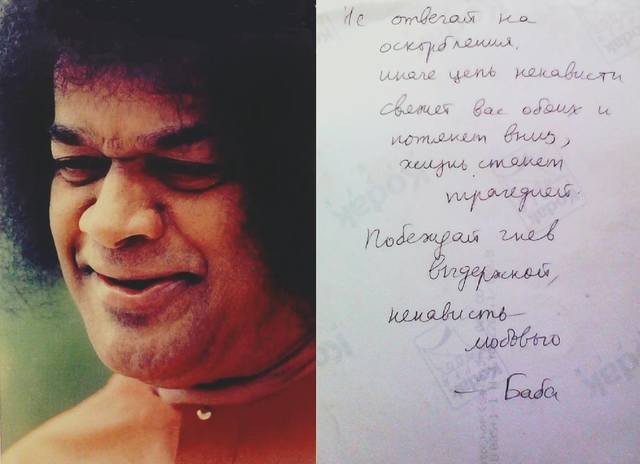 Не отвечай на
оскорбления,
иначе цепь ненависти
свяжет вас обоих и
потянет вниз,
жизнь станет
трагедией.
Побеждай гнев
выдержкой,
ненависть –
любовью
— Баба
Kodak
Kodak
Kodak